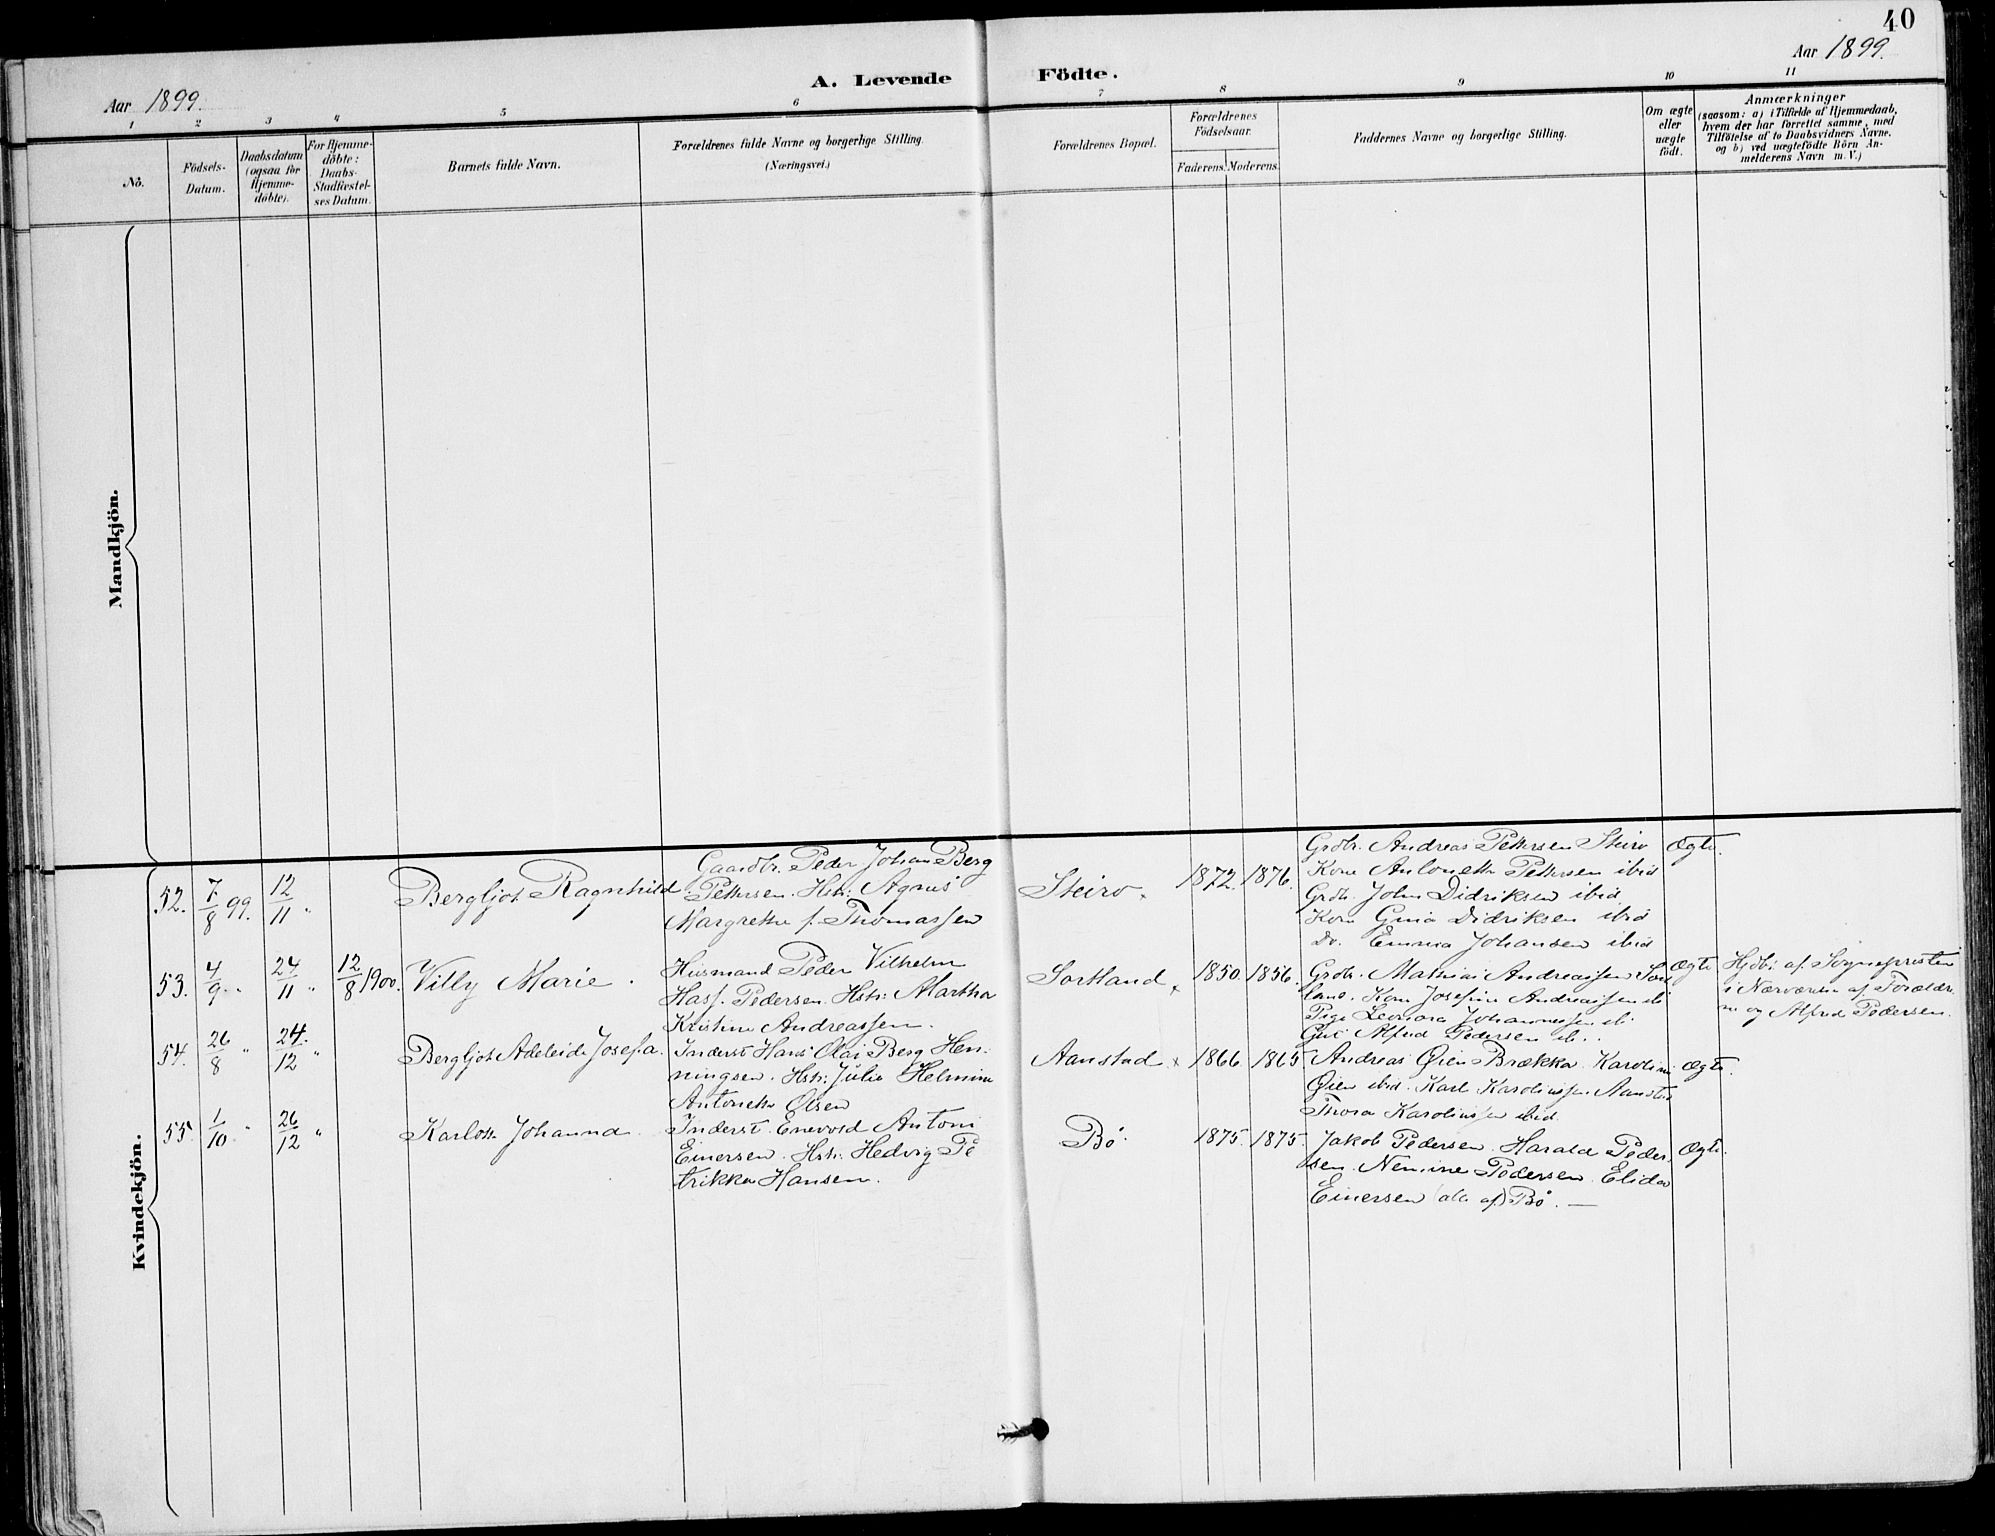 40
Aar 1899.
Aar 1899.
A. Levende Födte.
1 2 3 4 5 6 7 8 9 10 11
No.
Födsels-
Datum.
Daabsdatum
(ogsaa for
Hjemme-
døbte).
For Hjemme-
døbte:
Daabs-
Stadfæstel-
ses Datum.
Barnets fulde Navn.
Forældrenes fulde Navne og borgerlige Stilling.
(Næringsvei.)
Forældrenes Bopæl.
Forældrenes
Födselsaar.
Faderens. Moderens.
Faddernes Navne og borgerlige Stilling.
Om ægte
eller
uægte
født.
Anmærkninger
(saasom: a) i Tilfælde af Hjemmedaab,
hvem der har forrettet samme, med
Tilføielse af to Daabsvidners Navne.
og b) ved uægtefødte Börn An-
melderens Navn m. V.)
Mandkjön.
Kvindekjön.
52. 7/8 99. 12/11 "
Bergljot Ragnhild
Gaardbr. Peder Johan Berg
Pettersen. Hstr: Agnes
Margrethe f. Thomassen
Steiro.
1872. 1876.
Grdbr. Andreas Pettersen Steiro
Kone Antonette Pettersen ibid
Grdb. John Didriksen ibid
Kone Gina Didriksen ibid
Do. Emma Johansen ibid
Ægte.
53. 4/9 " 24/11 " 12/8 1900.
Villy Marie.
Husmand Peder Vilhelm
Hass Pedersen. Hstr: Martha
Kristine Andreassen.
Sortland
1850. 1856.
Grdb. Mathias Andreassen Sort
land. Kone Josefine Andreassen ib
Pige Leonora Johannessen ib.
Alfred Pedersen ib..
Ægte
Hjdbt af Sognepresten
i Nærværelse af Forældre
ne og Alfred Pedersen.
54. 26/8 " 24/12 "
Bergljot Adeleide Josefa.
Inderst Hans Olai Berg Hen-
ningsen. Hstr: Julie Helmine
Antonette Olsen
Aanstad
1866. 1865
Andreas Øien Brækka. Karoline
Øien ibid. Karl Karoliussen Aanstad
Thora Karoliussen ibid.
Ægte.
55. 1/10 " 26/12 "
Karlotte Johanna.
Inderst. Enevold Antoni
Einersen. Hstr: Hedvig Pe
trikka Hansen.
Bø.
1875. 1875.
Jakob Pedersen. Harald Peder
sen. Nemine Pedersen. Elida
Einersen (alle af) Bø. —
Ægte.